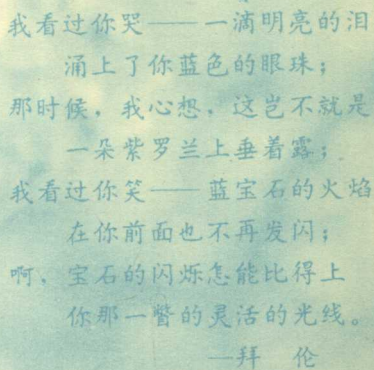 我看过你哭——一滴明亮的泪
涌上了你蓝色的眼珠；
那时候，我心想，这岂不就是
一朵紫罗兰上垂着露；
我看过你笑——蓝宝石的火焰
在你前面也不再发闪；
啊，宝石的闪烁怎能比得上
你那一瞥的灵活的光线。
—拜 伦